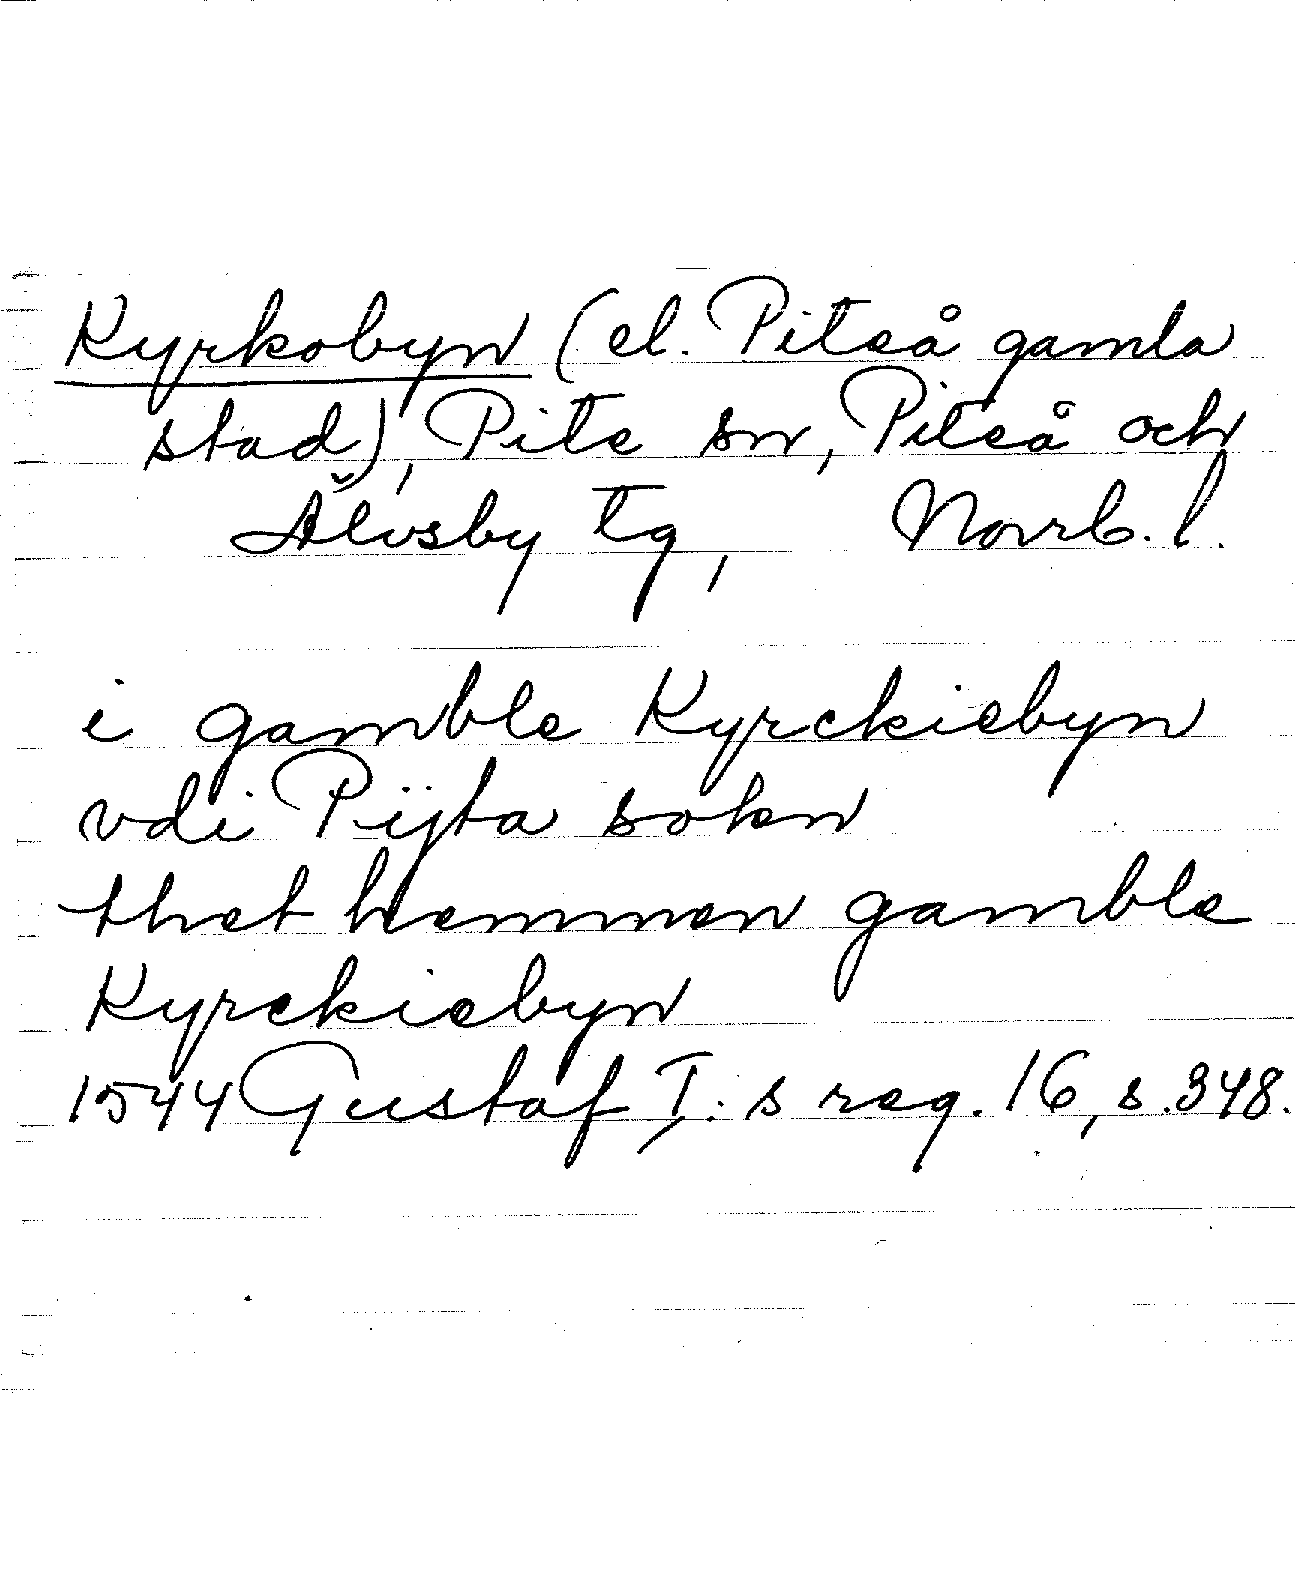 Kyrkobyn (el. Piteå gamla
stad), Pite sn, Piteå och
Älvsby tg, Norrb. l.
i gamble Kyrckiebyn
vdi Pijta sokn
thet hemmen gamble
Kyrckiebyn
1544 Gustaf I:s reg. 16, s. 348.